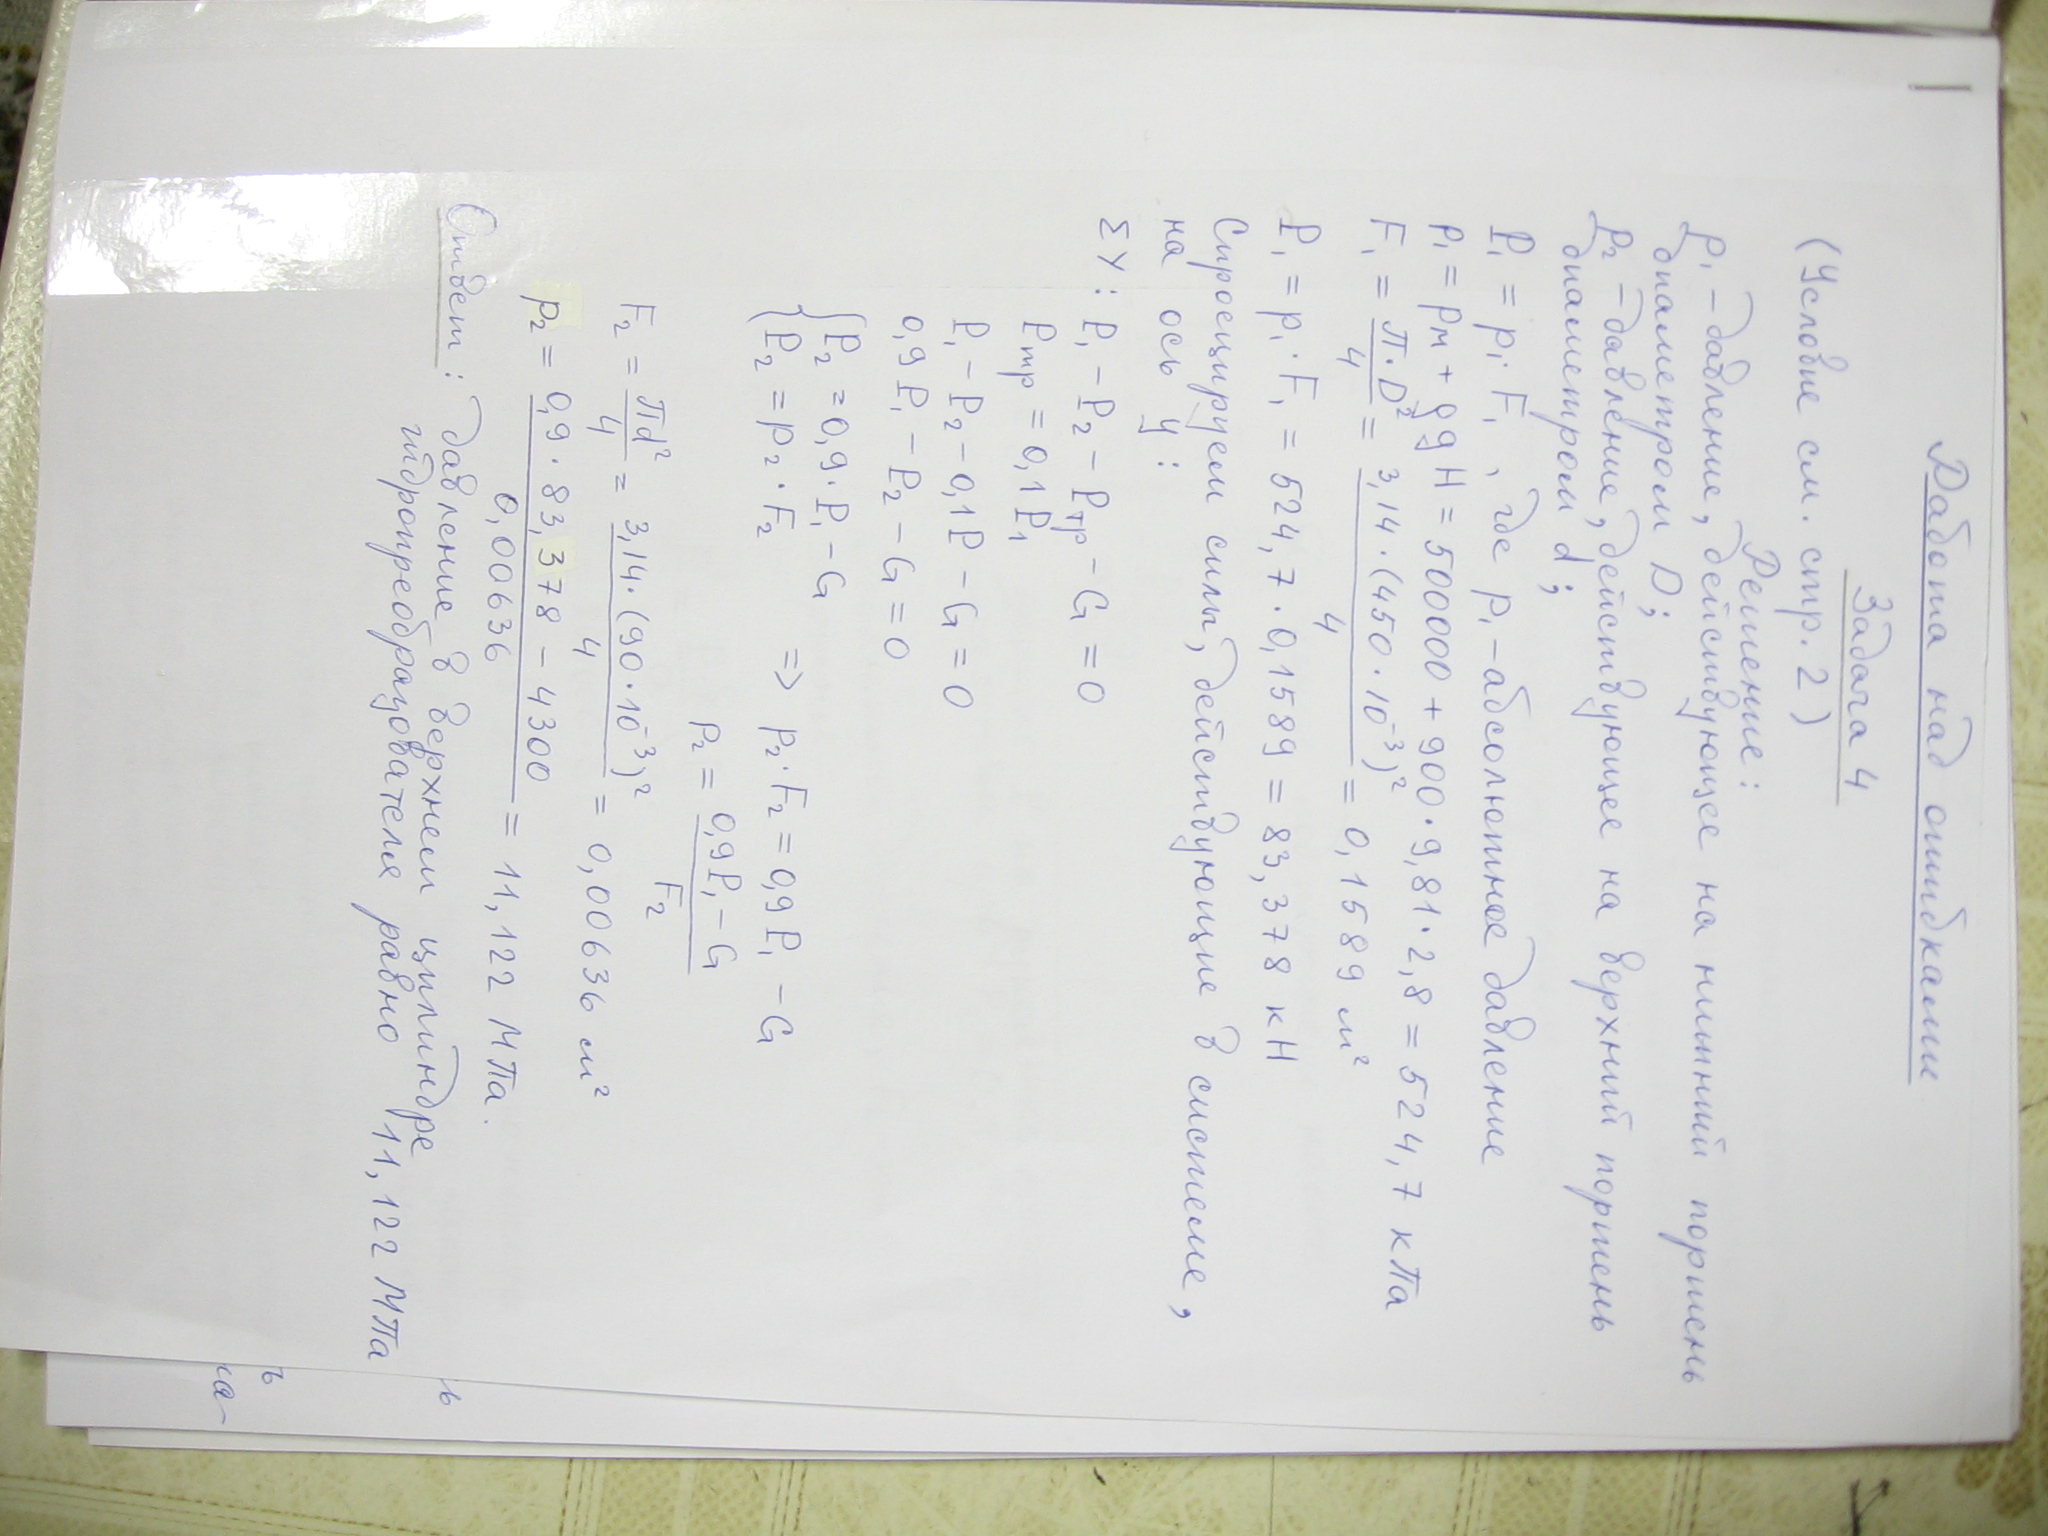 Работа над ошибками
Задача 4
(Условие см. стр. 2)
Решение:
p₁ – давление, действующее на нижний поршень
диаметром D;
p₂ – давление, действующее на верхний поршень
диаметром d;
P₁ = p₁ · F₁ , где p₁ – абсолютное давление
p₁ = pм + ρgH = 500000 + 900 · 9,81 · 2,8 = 524,7 кПа
F₁ = π·D²/4 = 3,14 · (450 · 10⁻³)²/4 = 0,1589 м²
P₁ = p₁ · F₁ = 524,7 · 0,1589 = 83,378 кН
Спроецируем силы, действующие в системе,
на ось y:
ΣY: P₁ – P₂ – Pтр – G = 0
Pтр = 0,1P₁
P₁ – P₂ – 0,1P – G = 0
0,9P₁ – P₂ – G = 0
{P₂ = 0,9·P₁ – G
{P₂ = p₂ · F₂ => p₂ · F₂ = 0,9P₁ – G
p₂ = 0,9P₁ – G/F₂
F₂ = πd²/4 = 3,14 · (90 · 10⁻³)²/4 = 0,00636 м²
p₂ = 0,9 · 83,378 – 4300/0,00636 = 11,122 МПа.
Ответ: давление в верхнем цилиндре
гидропреобразователя равно 11,122 МПа
ь
ъ
ча-